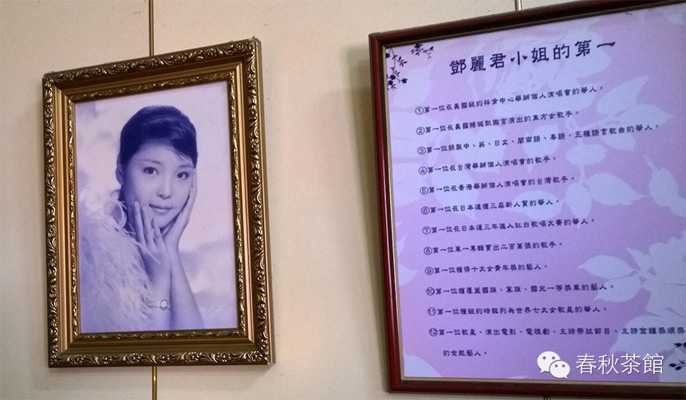 鄧麗君小姐的第一
①第一位在美國紐約林肯中心舉辦個人演唱會的華人。
②第一位在美國
演出的東方女歌手。
③第一位
中、英、日文、閩南語、粵語、五種語言歌曲的華人。
④第一位在台灣舉辦個人演唱會的歌手。
⑤第一位在香港舉辦個人演唱會的台灣歌手。
⑥第一位在日本連獲三座新人賞的華人。
⑦第一位在日本連三年進入紅白歌唱大賽的華人。
⑧第一位單一專輯賣出二百萬張的歌手。
⑨第一位獲得十大女青年獎的藝人。
⑩第一位獲覆蓋國旗、黨旗、國光一等獎章的藝人。
⑪第一位獲紐約時報列為世界七大女歌星的華人。
⑫第一位歌星、演出電影、電視劇、主持帶狀節目、主持金鐘獎頒獎
的女歌藝人。
春秋茶館